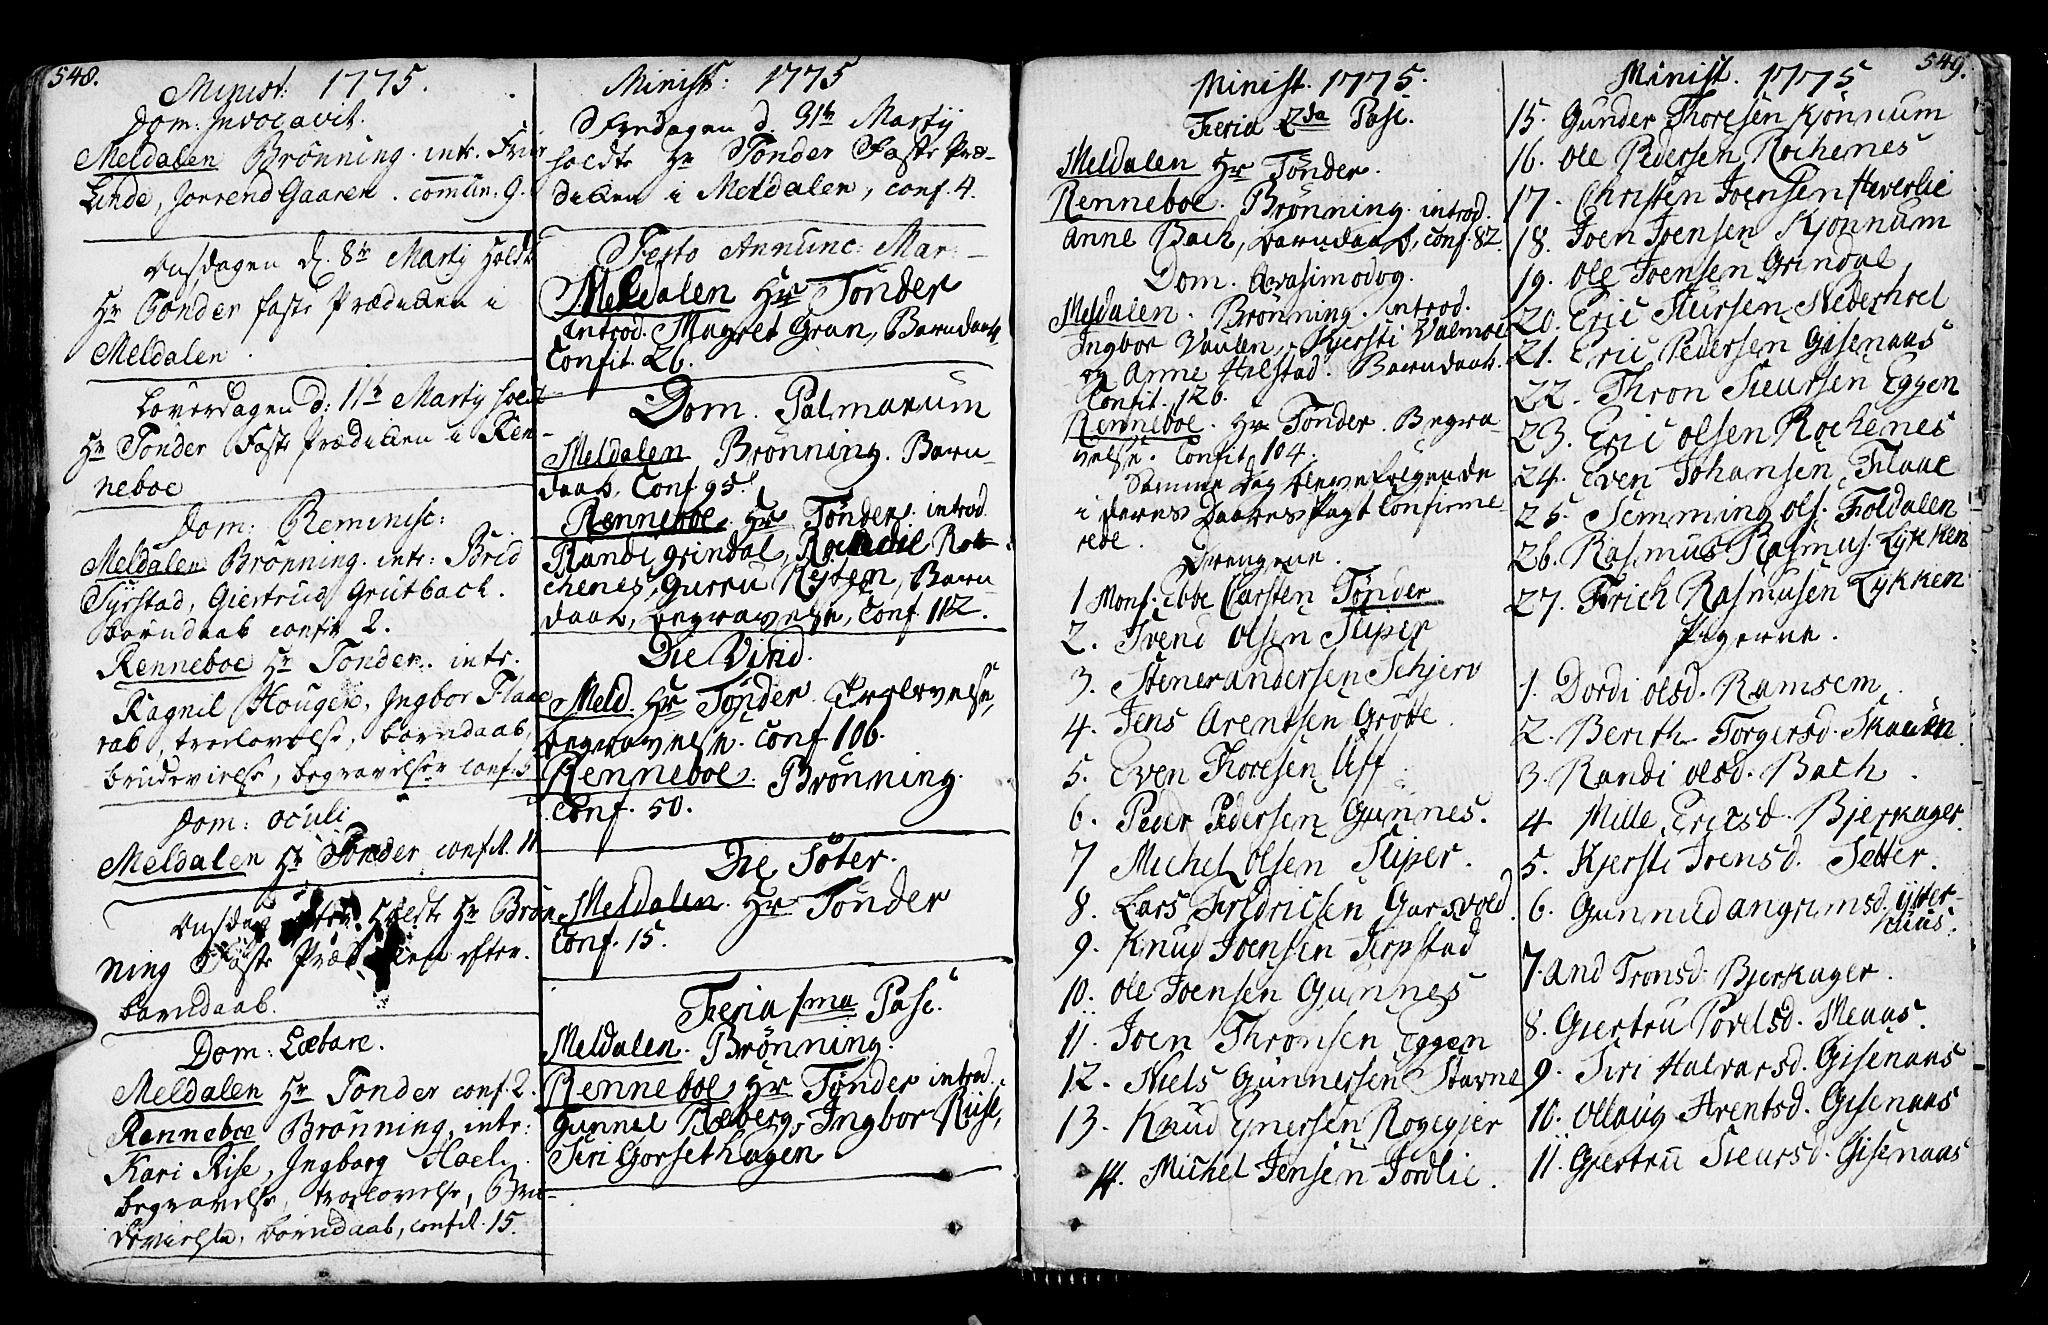 548.
Minist: 1775.
Dom: Invocavit.
Meldalen Brønning. intr.
Linde, Jorrend Gaaren. comun. 9.
Onsdagen d. 8de Martij holdt
Hr Tønder faste Prædiken i
Meldalen.
Løverdagen d: 11te Martij holdt
Hr Tønder Faste Prædiken i Ren
neboe
Dom: Reminisc:
Meldalen Brønning. intr: Bרid
Syrstad, Giertrud Grutbach.
barndaab confit 2.
Renneboe Hr Tønder. intr.
Ragnil Hougen, Ingbor Flaae
trolovelse, barndaab,
brudevielse, begravelser conf. 5
Dom: Oculi
Meldalen Hr Tønder confit. 11
Onsdag holdte Hr Brøn
ning Faste Prædiken efter.
barndaab.
Dom: Lætare.
Meldalen Hr Tønder conf. 2.
Renneboe Brønning, intr:
Kari Rise, Ingborg Hoel.
begravelse, trolovelse, Bru-
devielse, barndaab, confit. 15.
Minist: 1775
Fredagen d. 31te Martij
holdte Hr Tønder Faste Præ-
diken i Meldalen, conf. 4.
Festo Annunc: Mar:
Meldalen Hr Tønder
introd. Magret Gran, Barndaab,
Confit. 26.
Dom. Palmarum
Meldalen Brønning. Barn-
daab, Conf 95.
Renneboe. Hr Tønder. introd.
Randi grindal, Rot-
chenes, Gurru Rysten, Barn
daab, begravelse, Conf. 112.
Die Virid.
Meld. Hr Tønder. Trolovelse,
begravelse. conf 106.
Renneboe. Brønning.
Conf. 50.
Die Søter.
Meldalen. Hr Tønder
Conf. 15.
Feria 1ma Pasc.
Meldalen. Brønning.
Renneboe, Hr Tønder introd.
Gunnil Næberg, Ingbor Riise,
Siri Gorsethagen
549.
Minist. 1775.
Feria 2da Pasc.
Meldalen Hr Tønder.
Renneboe. Brønning. introd.
Anne Bach, barndaab, conf. 82.
Dom. Qvasimodog.
Meldalen. Brønning. introd.
Ingbor Vaulen, Kjersti Valmoe
og Anne Hilstad. Barndaab.
Confit. 126.
Renneboe. Hr Tønder. Begra-
velse. Confit. 104.
Samme dag bleve følgende
i deres Daabes Pagt Confirme
rede.
Drengene.
1 Mons. Ebbe Carsten Tønder
2. Svend Olsen Sliper
3. Stener andersen Schjerv
4. Jens Arentsen Grotte.
5. Even Thoresen Uff.
6. Peder Pedersen Gunnes.
7 Michel Olsen Sliper.
8. Lars Fredricsen Garsvold.
9. Knud Joensen Jerpstad
10. Ole Joensen Gunnes
11. Joen Thronsen Eggen
12. Niels Gunnersen Stavne
13. Knud Enersen Rogegjer
14. Michel Jensen Jordlie.
Minist. 1775
15. Gunder Thoresen Kjønnum
16. Ole Pedersen Rochenes
17. Christen Joensen Heverlie
18. Joen Joensen Kjonnum
19. Ole Joensen Grindal
20. Eric Siursen Nederhoel
21. Eric Pedersen Gisenaas
22. Thron Sieursen Eggen
23. Eric Olsen Rochenes
24. Even Johansen Flaae
25. Semming Ols. Foldalen
26. Rasmus Rasmus. Lykken
27. Frich Rasmusen Lykken
Pigerne.
1. Dordi Olsd. Ramsem
2. Berith Torgersd. Skauen.
3. Randi Olsd. Bach.
4 Mille Ericsd. Bjerkager.
5. Kjersti Joensd. Setter.
6. Gunnild angrimsd. yster-
huus.
7. And Tronsd. Bjerkager.
8. Giertru Povelsd. Meaas.
9. Siri Halvarsd. Gisenaas
10. Ollaug Arentsd. Gisenaas
11. Giertru Sieursd. Gisenaas